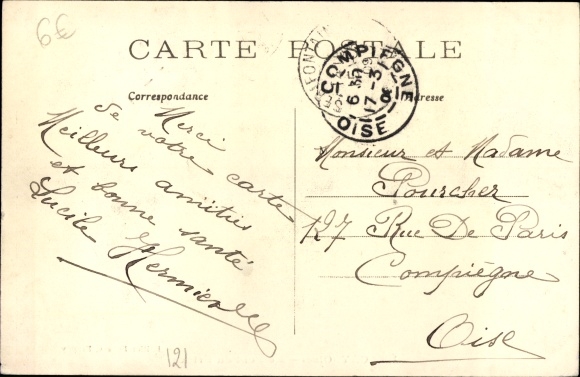 6€
CARTE POSTALE
Correspondance
Adresse
COMPIEGNE
6 30
17 - 3
OISE
Merci
de votre carte
Meilleurs amitiés
et bonne santé
Lucile
Monsieur et Madame
Pourcher
127 Rue De Paris
Compiègne
Oise
121